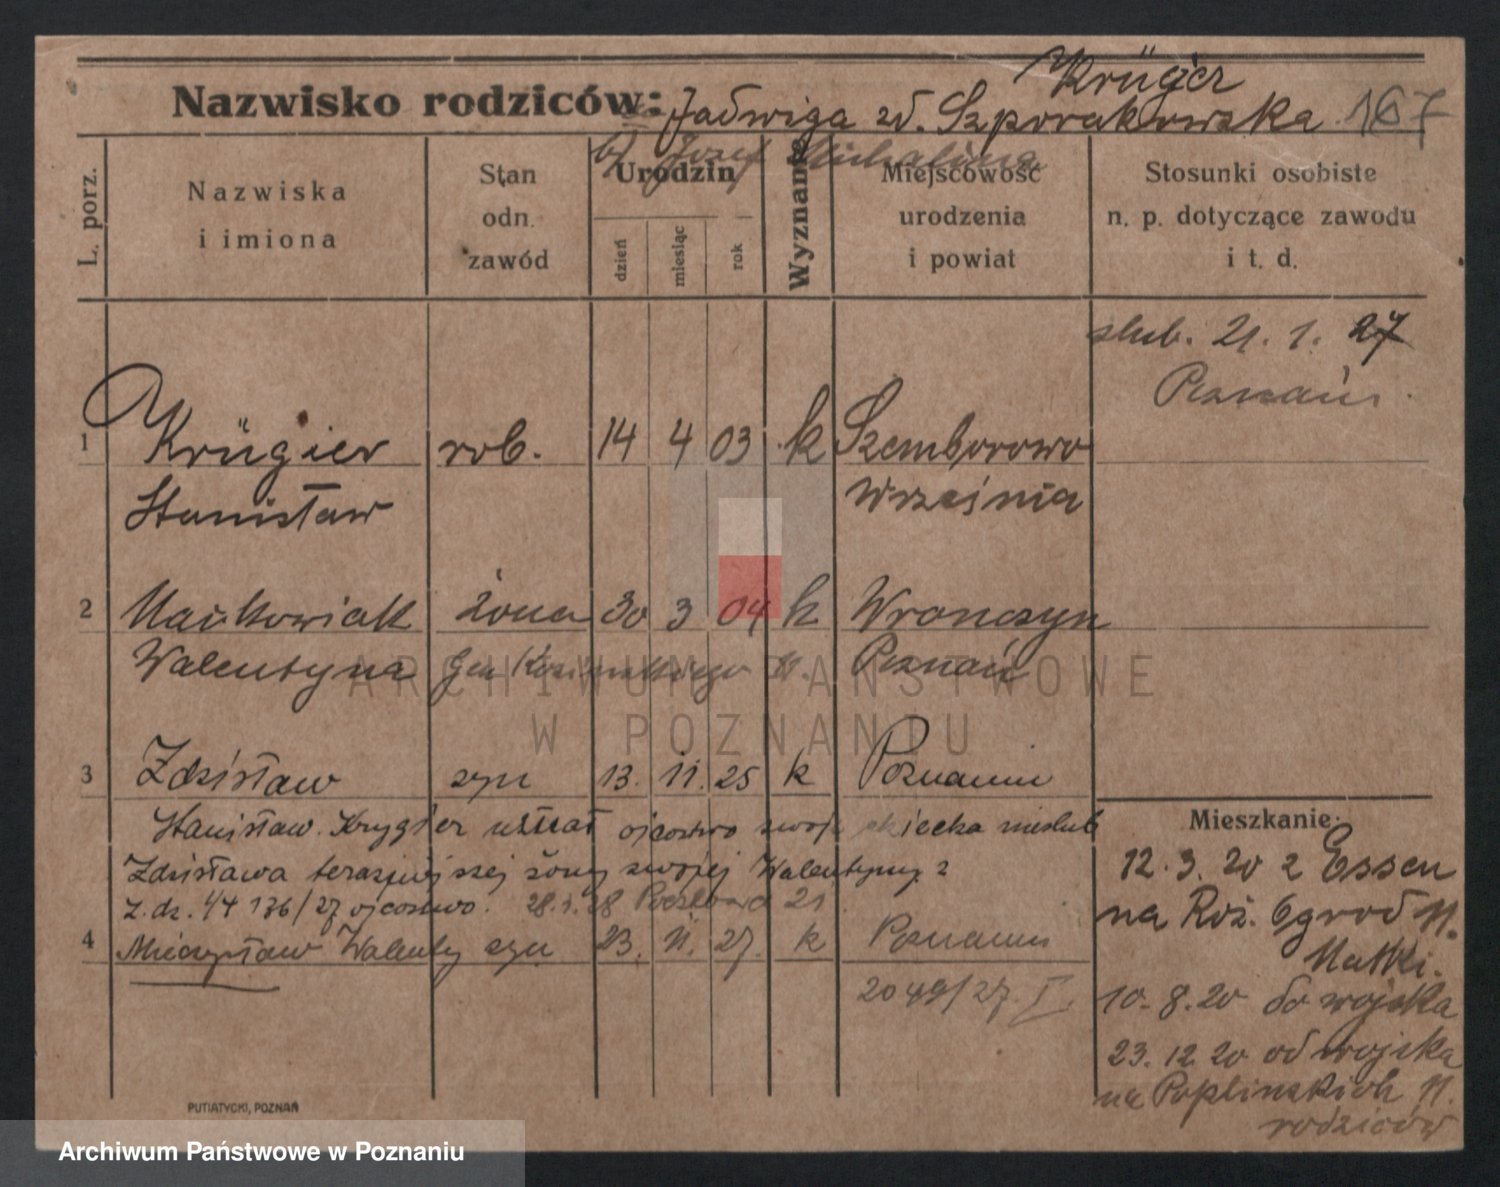 Krüger
Nazwisko rodziców: Jadwiga zd. Szporakowska 167
b) Józef Michalina
L. porz.
Nazwiska i imiona
Stan odn. zawód
Urodzin
dzień
miesiąc
rok
Wyznanie
Miejscowość urodzenia i powiat
Stosunki osobiste n. p. dotyczące zawodu i t. d.
ślub. 21. 1. 27
Poznań.
1 Krügier rob. 14 4 03 k Szemborowo
Stanisław Września
2 Maćkowiak żona 30 3 04 k Wronczyn
Walentyna Gen. Poznań
ARCHIWUM PAŃSTWOWE
W POZNANIU
3 Zdzisław syn 13. 11. 25 k Poznaniu
Stanisław Krygier uznał ojcostwo swoje nieślub
Zdzisława terazniejszej żony swojej Walentyny z
Z. dz. 1/4 136/27 ojcostwo. 28. 1. 28 21
4 Mieczysław Walenty syn 23. 11. 27. k Poznaniu
2049/27. I.
Mieszkanie:
12. 3. 20 z Essen
na Róż. Ogrod 11.
Matki.
10. 8. 20 do wojska
23. 12. 20 od wojska
na Poplinskich 11.
rodziców
PUTIATYCKI, POZNAŃ
Archiwum Państwowe w Poznaniu